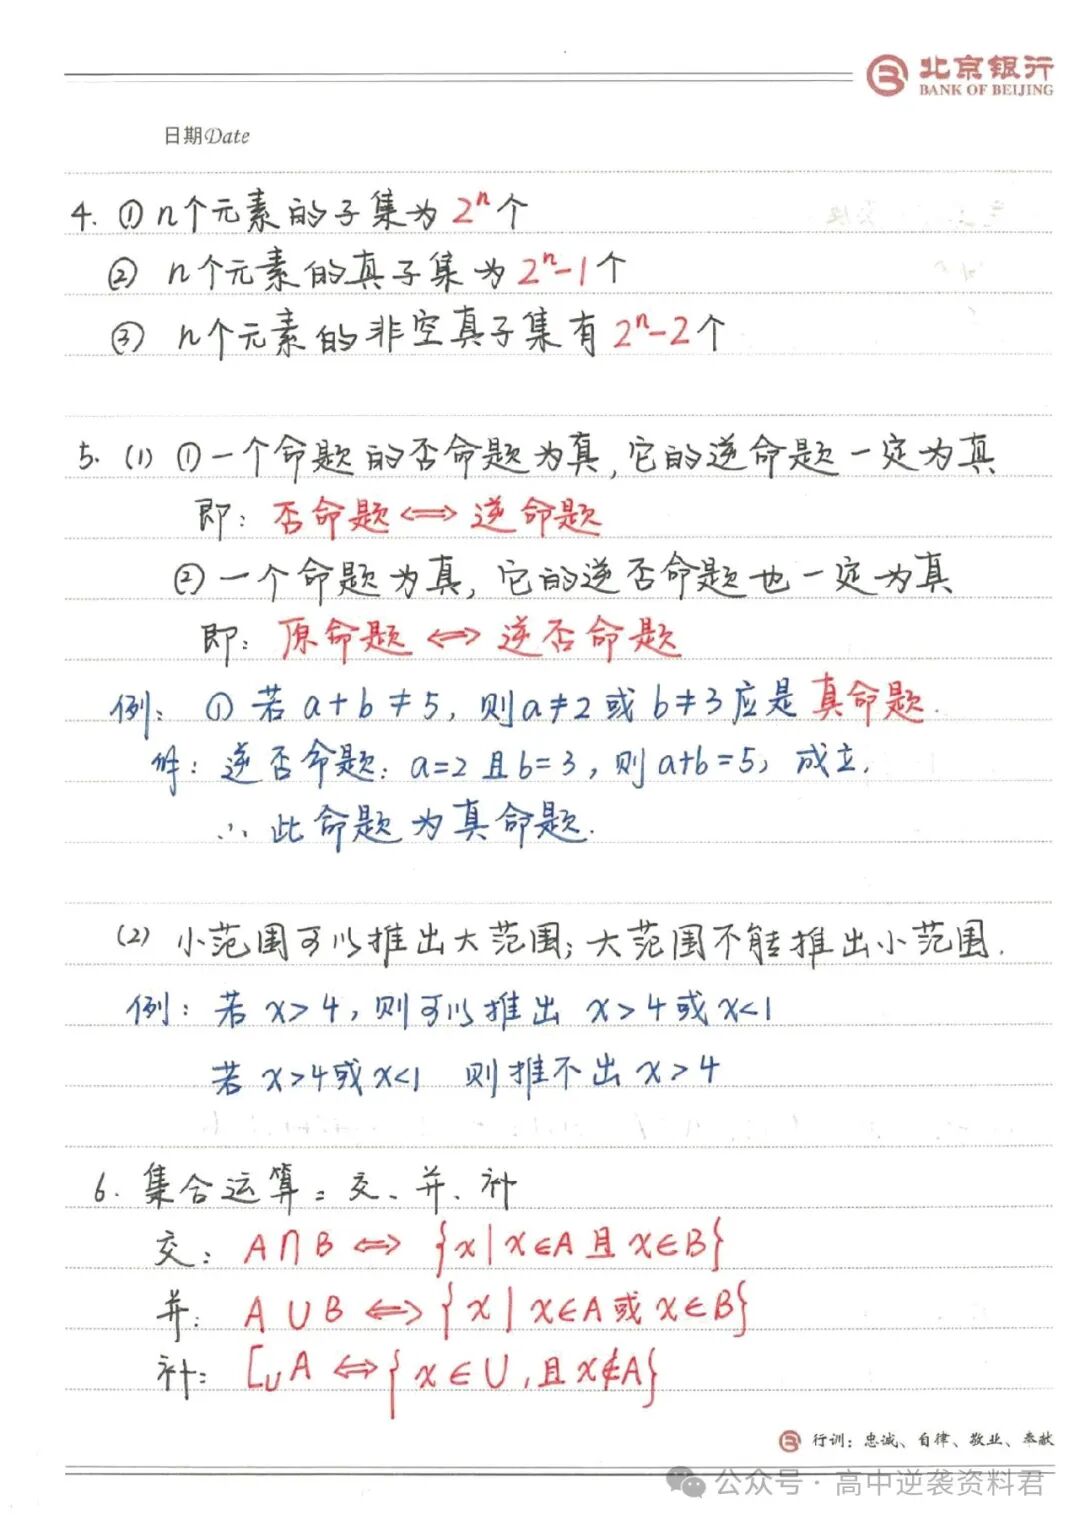 北京银行
BANK OF BEIJING
日期Date
4. ①n个元素的子集为2ⁿ个
② n个元素的真子集为2ⁿ-1个
③ n个元素的非空真子集有2ⁿ-2个
5. (1) ①一个命题的否命题为真,它的逆命题一定为真
即: 否命题⇔逆命题
②一个命题为真,它的逆否命题也一定为真
即: 原命题⇔逆否命题
例: ①若a+b≠5,则a≠2或b≠3应是真命题.
解: 逆否命题: a=2且b=3,则a+b=5,成立.
∴此命题为真命题.
(2) 小范围可以推出大范围;大范围不能推出小范围.
例: 若x>4,则可以推出 x>4或x<1
若x>4或x<1 则推不出x>4
6. 集合运算:交、并、补
交: A∩B⇔{x|x∈A且x∈B}
并: A∪B⇔{x|x∈A或x∈B}
补: ∁ᵤA⇔{x∈U,且x∉A}
行训:忠诚、自律、敬业、奉献
公众号·高中逆袭资料君